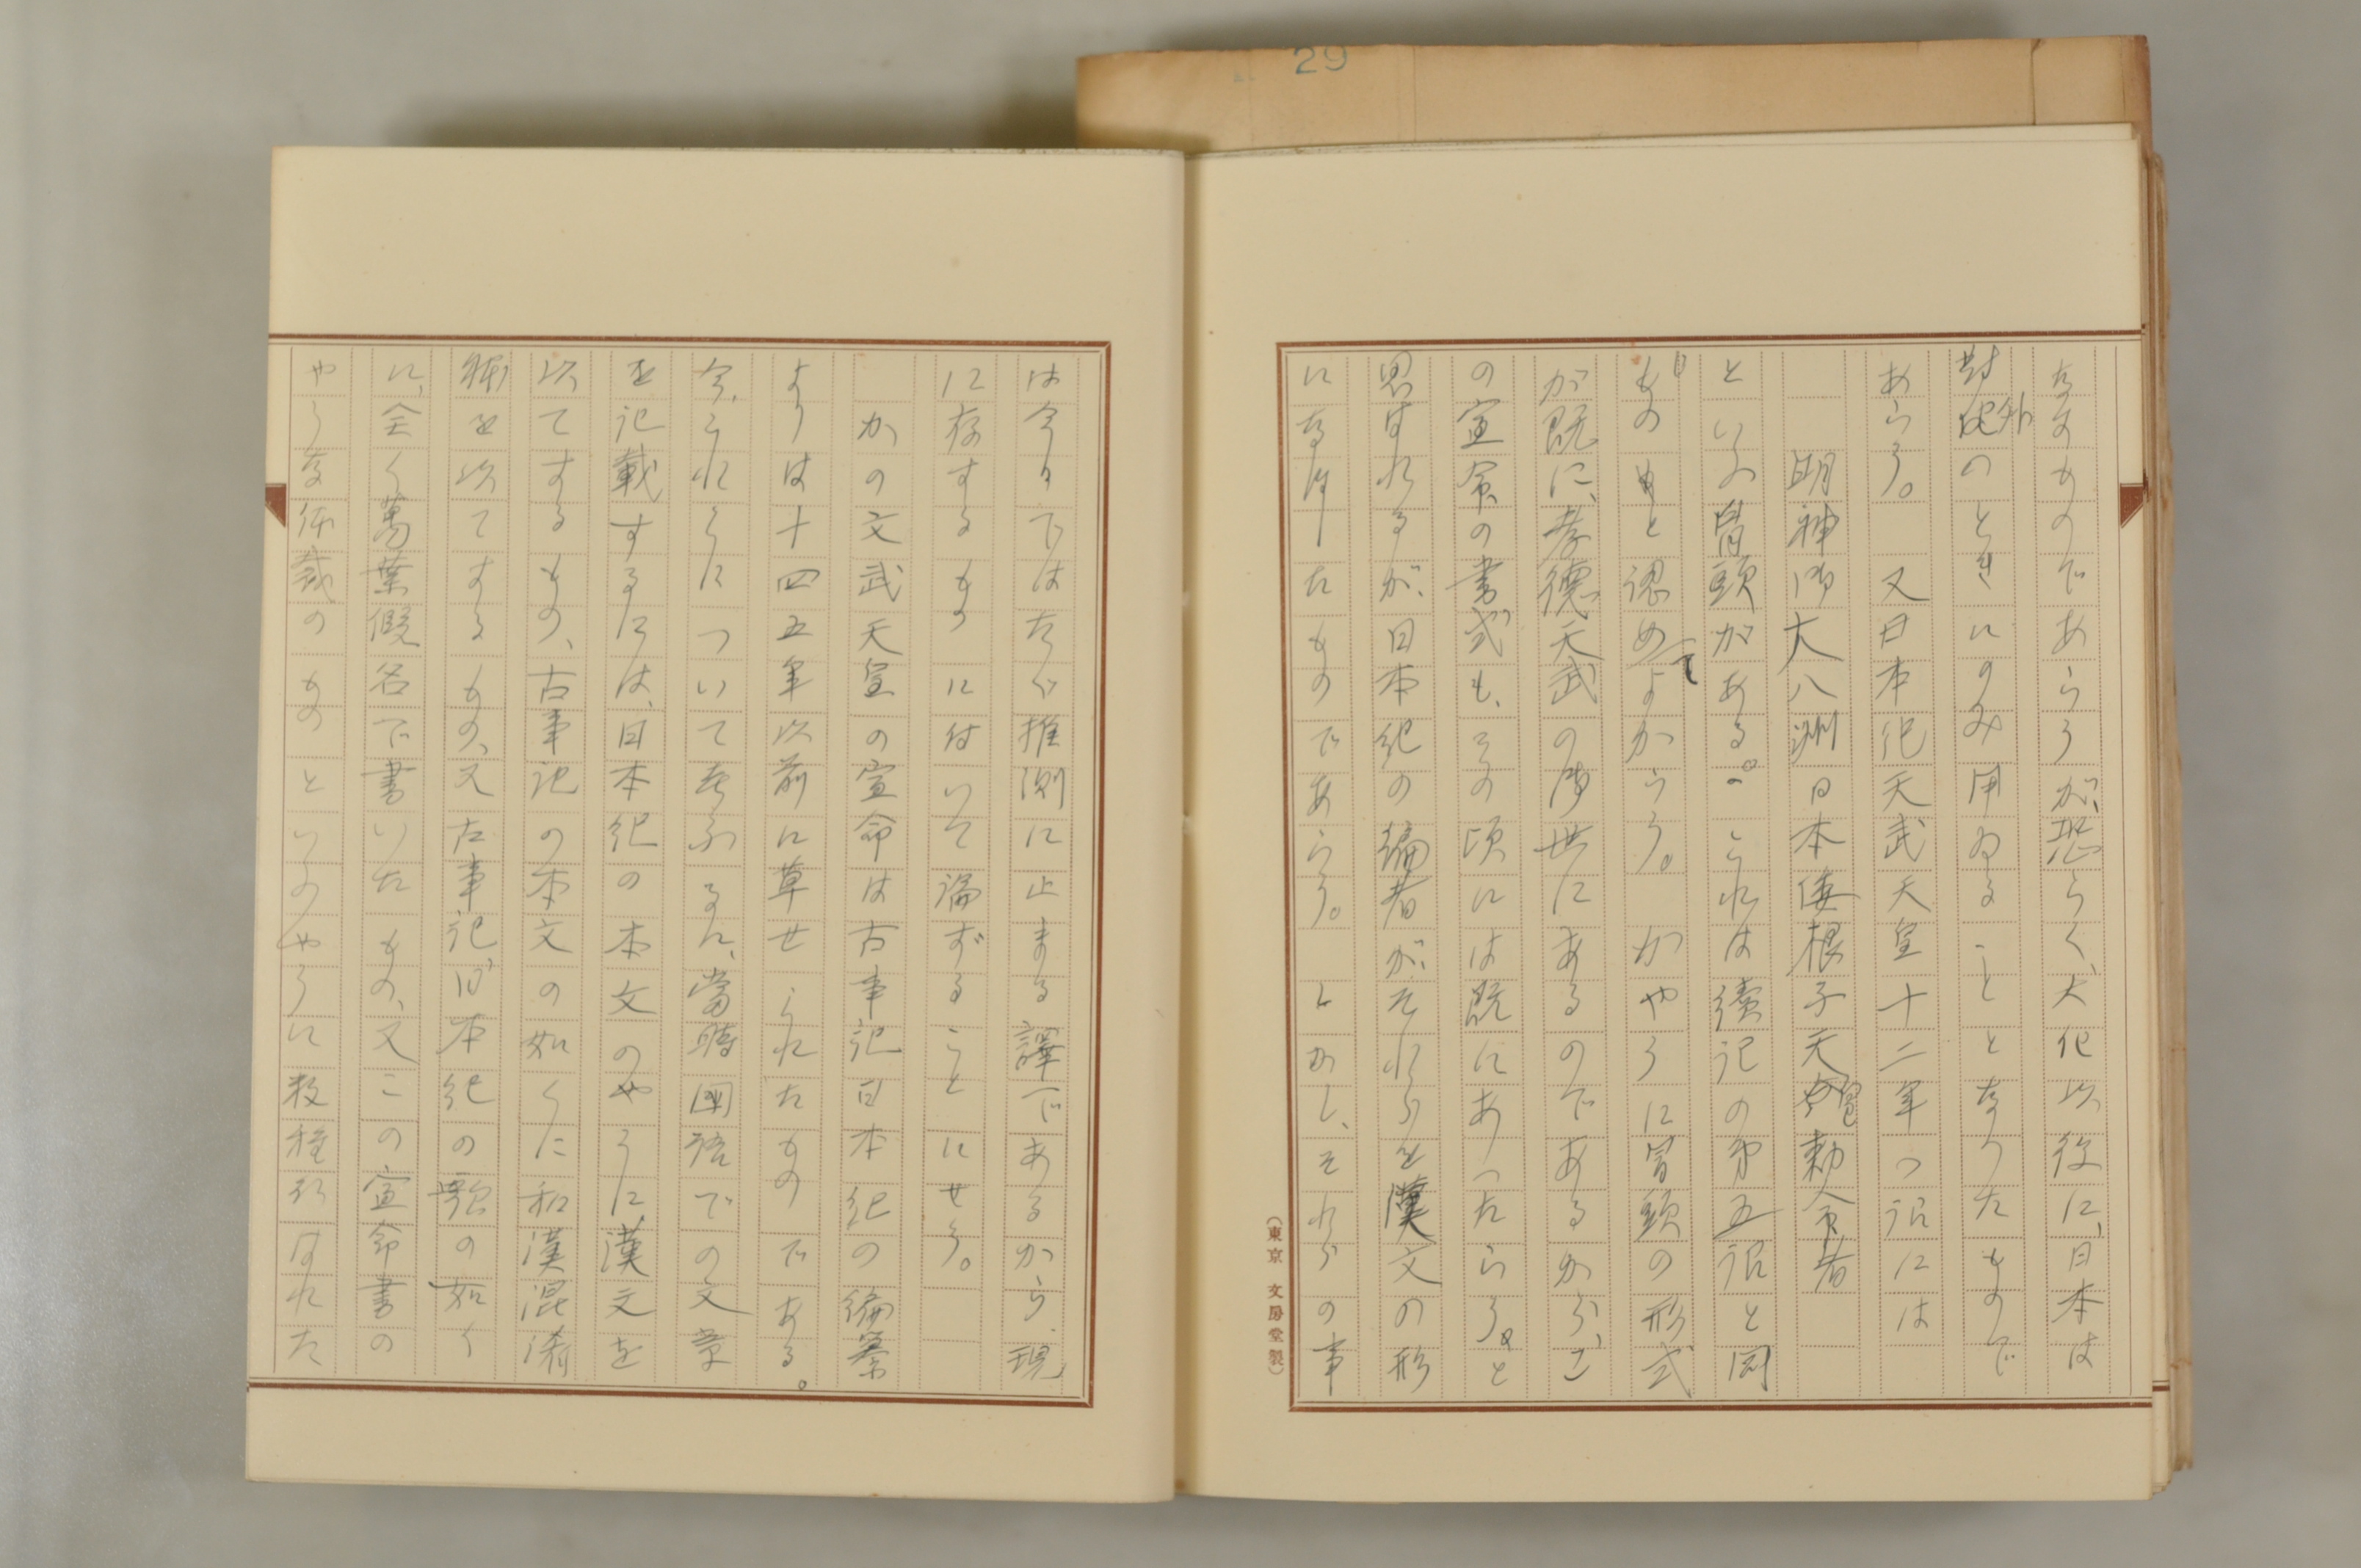 29
なすものであらうが、恐らく、大化以後に、日本は
対外のときにのみ用ゐることとなつたもので
あらう。 又日本紀天武天皇十二年の詔には
明神御大八洲日本倭根子天皇勅命者
といふ冒頭がある。これは続記の第五詔と同
じもの と認めてよからう。 かやうに冒頭の形式
が既に、孝徳天武の御世にあるのであるから、こ
の宣命の書式も、その頃には既にあつたらうと
思はれるが、日本紀の編者が、それらを漢文の形
になほしたものであらう。 しかし、それらの事
(東京 文房堂製)
は今日ではたゞ推測に止まる譯であるから、現
に存するものに付いて論ずることにせう。
かの文武天皇の宣命は古事記日本紀の編纂
よりは十四五年以前に草せられたものである。
今、これらについて考ふるに、當時國語での文章
を記載するには、日本紀の本文のやうに、漢文を
以てするもの、古事記の本文の如くに和漢混淆
体を以てするもの、又古事記日本紀の歌の如く
に、全く萬葉假名で書いたもの、又この宣命書の
やうな体裁のものといふやうに数種行はれた